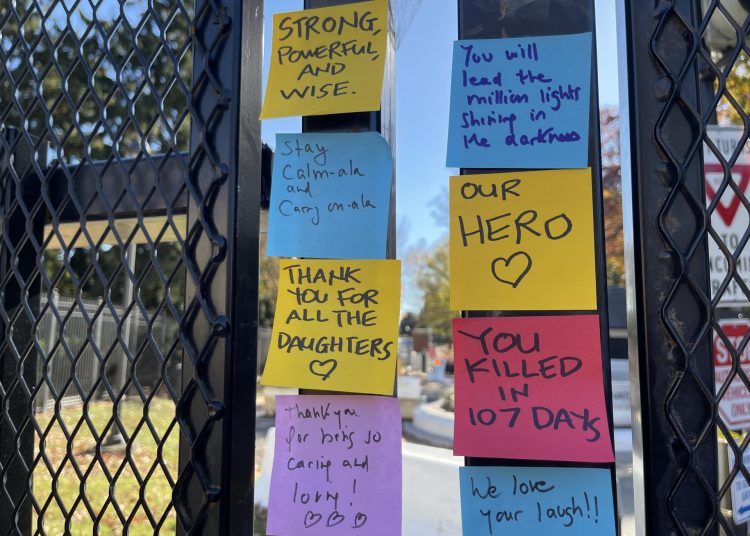 STRONG,
POWERFUL,
AND
WISE.
Stay
Calm-ala
and
Carry on-ala
THANK
YOU FOR
ALL THE
DAUGHTERS
Thank you
for being so
caring and
loving!
You will
lead the
million lights
shining in
the darkness
OUR
HERO
YOU
KILLED
IN
107 DAYS
We love
your laugh!!
TURN
TO
ONLY